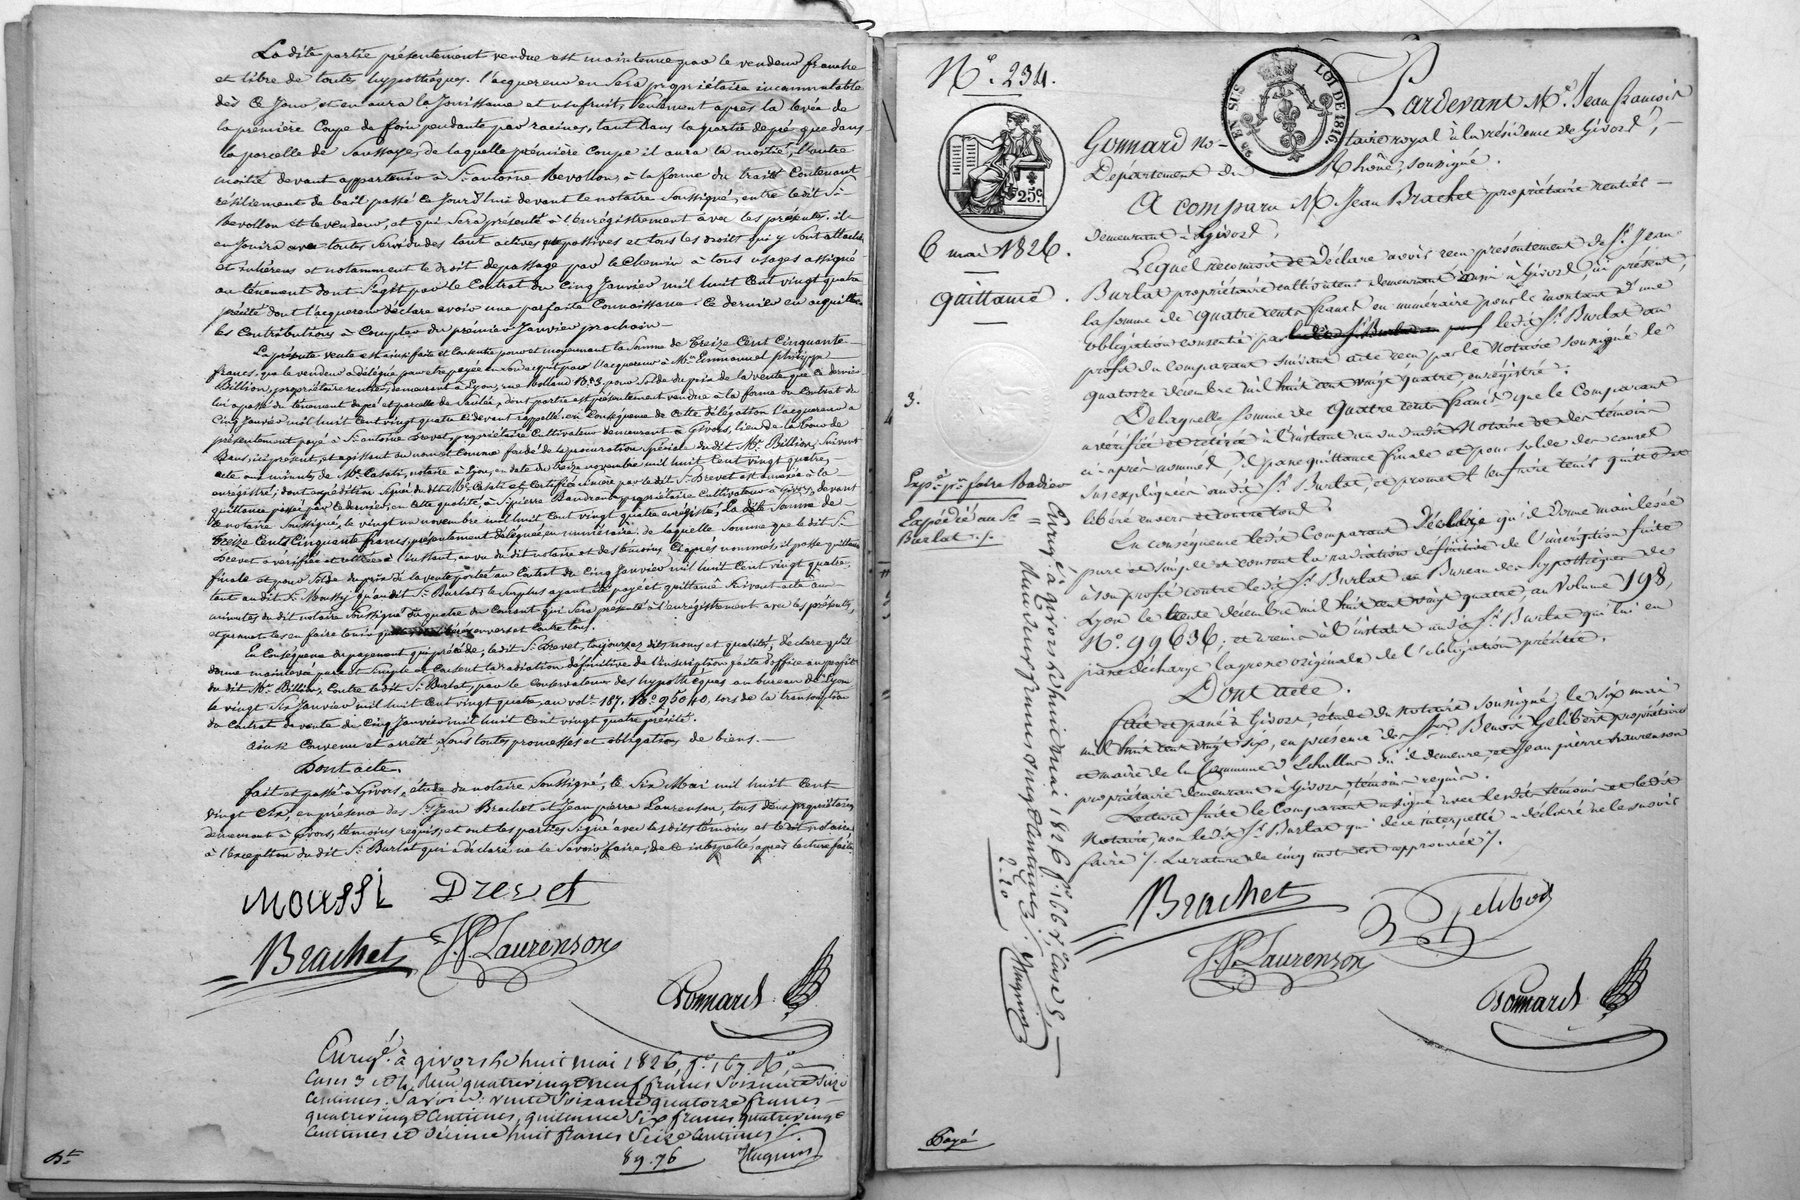 La dite partie présentement vendue est maintenue par le vendeur franche
et libre de toutes hypothèques. l'acquereur en sera propriétaire incommutable
dès ce jour et en aura la jouissance et usufruit, seulement après la levée de
la première coupe de foin pendante par racines, tant dans la partie de pré que dans
la parcelle de saussaye, de laquelle première coupe il aura la moitié, l'autre
moitié devant appartenir à Sr. antoine Revollon, à la forme du traité contenant
résiliement de bail passé ce jourd'hui devant le notaire soussigné, entre ledit Sr.
Revollon et le vendeur, et qui sera présenté à l'enregistrement avec les présentes. il
en jouira avec toutes servitudes tant actives que passives et tous les droits qui y sont attachés
et inhérens et notamment le droit de passage par le chemin à tous usages assigné
au tènement dont s'agit par le contrat du cinq Janvier mil huit cent vingt quatre
précité dont l'acquereur déclare avoir une parfaite connaissance. ce dernier en acquittera
les contributions à compter du premier Janvier prochain.
La présente vente est ainsi faite et consentie pour et moyennant la somme de treize cent cinquante
francs, que le vendeur a délégué pour être payée en son acquit par l'acquereur à Mr. Emmanuel philippe
Billion, propriétaire rentier, demeurant à Lyon, rue Rolland, pour solde du prix de la vente que ce dernier
lui a passé du tènement de pré et parcelle de saulée, dont partie est présentement vendue à la forme du contrat du
cinq Janvier mil huit cent vingt quatre ci devant rappellé. en conséquence de cette délégation l'acquereur a
présentement payé à Sr. antoine Drevet, propriétaire cultivateur demeurant à Givors, lieu de
Bans, ici présent, et agissant au nom et comme fondé de la procuration spéciale du dit Mr. Billion, suivant
acte aux minutes de Me. Casati, notaire à Lyon, en date du treize novembre mil huit cent vingt quatre,
enregistré, dont expédition signée du dit Me. Casati et certifiée encore par le dit Sr. Drevet est annexée à la
quittance passée par ce dernier, en cette qualité, à Sr. pierre Baudran propriétaire cultivateur à Givors, devant
le notaire soussigné, le vingt un novembre mil huit cent vingt quatre enregistré, La dite somme de
treize cents cinquante francs, présentement déléguée, en numéraire. de laquelle somme que le dit Sr.
Drevet a vérifiée et retirée à l'instant au vu du dit notaire et des témoins ci après nommés, il passe quittance
finale et pour solde du prix de la vente portée au contrat du cinq Janvier mil huit cent vingt quatre,
tant au dit Sr. Moussy qu'au dit Sr. Burlat, le surplus ayant été payé et quittancé suivant acte aux
minutes du dit notaire soussigné du quatre du courant qui sera présenté à l'enregistrement avec les présentes,
et promet les en faire tenir quittes envers et contre tous.
En conséquence du payement qui précède, le dit Sr. Drevet, toujours es dits noms et qualités, déclare qu'il
donne mainlevée pure et simple et consent la radiation définitive de l'inscription faite d'office au profit
du dit Mr. Billion, contre le dit Sr. Burlat, par le conservateur des hypothèques au bureau de Lyon
le vingt six Janvier mil huit cent vingt quatre, au vol. 187. No. 95040, lors de la transcription
du contrat de vente du cinq Janvier mil huit cent vingt quatre précité.
ainsi convenu et arrêté, sous toutes promesses et obligations de biens.
Dont acte.
fait et passé à Givors, étude du notaire soussigné, le six Mai mil huit cent
vingt six, en présence des Srs. Jean Brachet et Jean pierre Laurenson, tous deux propriétaires
demeurant à Givors, témoins requis, et ont les parties signé avec les dits témoins et le dit notaire
à l'exception du dit Sr. Burlat qui a déclaré ne le savoir faire, de ce interpellé, après lecture faite.
Moussi Drevet
Brachet J. P. Laurenson
Gonnard
Enregé. à givors le huit mai 1826, fo. 167 Ro.,
Cases 3 et 4, Reçu quatrevingt neuf francs soixante seize
centimes. Savoir: vente soixante quatorze francs
quatre vingt centimes, quittance six francs quatre vingt
centimes et décime huit francs seize centimes
89.76 Huguin
No. 234.
6 mai 1826.
Quittance.
25c.
95 EN SUS
LOI DE 1816.
3.
Expon. pr. faire Radier
Expédié au Sr.
Burlat ./.
Enregé à givors le huit mai 1826 fo. 166 vo. Case 8,
Reçu deux francs vingt centimes ./. Huguin
2.20
Pardevant Me. Jean francois
Gonnard notaire royal à la résidence de Givors,
Département du Rhône, soussigné.
A comparu Mr. Jean Brachet propriétaire rentier
demeurant à Givors.
Lequel reconnoit et déclare avoir reçu présentement de Sr. Jean
Burlat propriétaire cultivateur demeurant aussi à Givors, ici présent,
la somme de quatre cents francs en numéraire pour le montant d'une
obligation consentie par ledit Sr. Burlat au
profit du comparant suivant acte reçu par le Notaire soussigné le
quatorze décembre mil huit cent vingt quatre, enregistré.
De laquelle somme de quatre cents francs que le comparant
a vérifiée et retirée à l'instant au vu dudit Notaire et des témoins
ci-après nommés, il passe quittance finale et pour solde des causes
sus expliquées audit Sr. Burlat, et promet l'en faire tenir quitte et
libéré envers et contre tous.
En conséquence ledit Comparant déclare qu'il donne mainlevée
pure et simple et consent la radiation définitive de l'inscription faite
à son profit contre ledit Sr. Burlat au Bureau des hypothèques de
Lyon le trente décembre mil huit cent vingt quatre, au Volume 198,
No. 99636; et a remis à l'instant audit Sr. Burlat qui lui en
passe décharge la grosse originale de l'obligation précitée.
Dont acte.
fait et passé à Givors, étude du Notaire soussigné, le six mai
mil huit cent vingt six, en présence des Srs. Benoit Gelibert propriétaire
et maire de la Commune d'Echallas où il demeure, et Jean pierre Laurenson
propriétaire demeurant à Givors, témoins requis.
Lecture faite le Comparant a signé avec lesdits témoins et ledit
Notaire, non ledit Sr. Burlat qui de ce interpellé a déclaré ne le savoir
faire ./. La rature de cinq mots est approuvée ./.
Brachet Gelibert
J. P. Laurenson
Gonnard
Payé